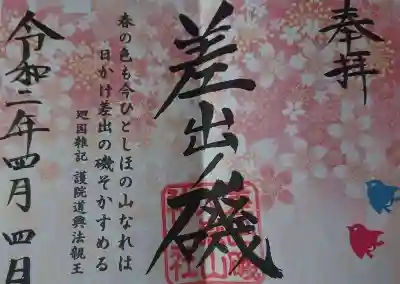 奉拝
差出ノ磯
春の色も今ひとしほの山なれは
日かけ差出の磯そかすめる
廻国雑記 護院道興法親王
令和二年四月四日